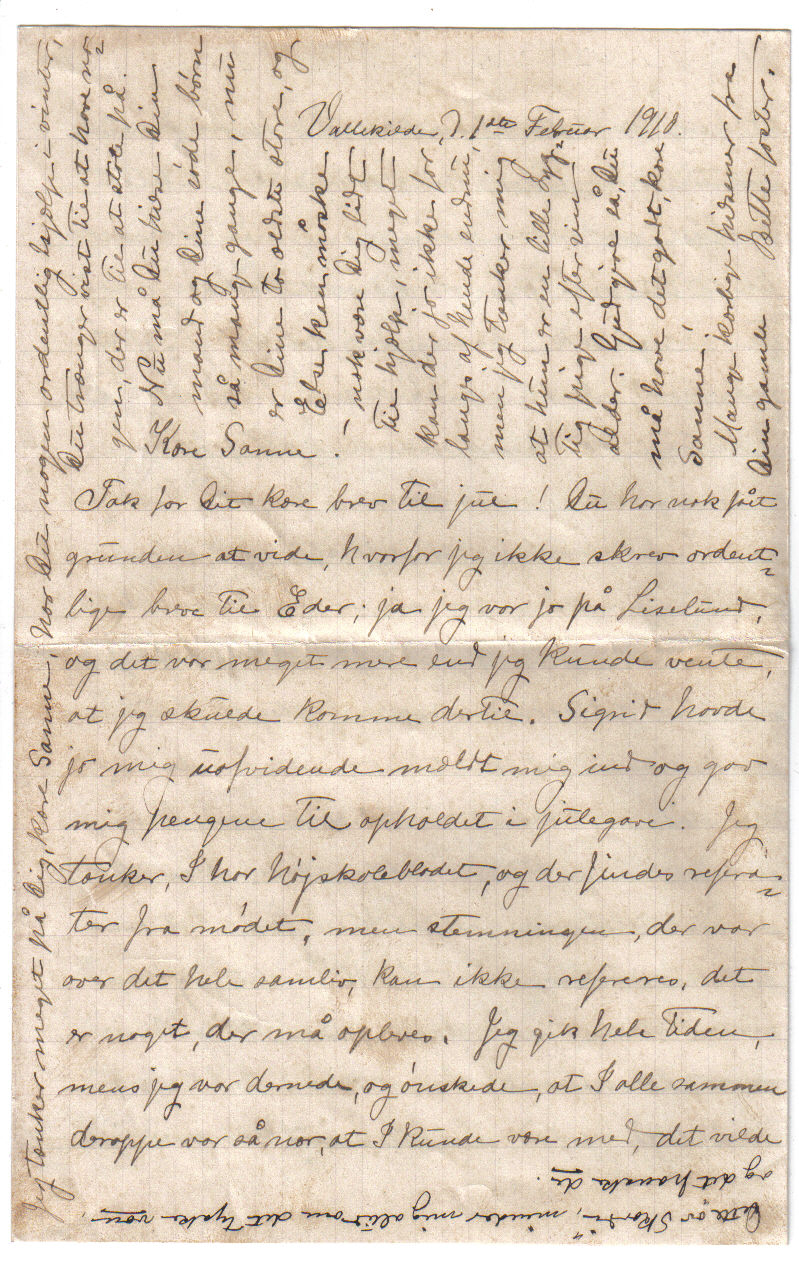 Vallekilde, d. 1ste Februar 1910.
Kære Sanne!
Tak for Dit kære brev til jul! Du har nok fået
grunden at vide, hvorfor jeg ikke skrev ordent=
lige breve til Eder; ja jeg var jo på Liselund,
og det var meget mere end jeg kunde vente,
at jeg skulde komme dertil. Sigrid havde
jo mig uafvidende meldt mig ind og gav
mig pengene til opholdet i julegave. Jeg
tænker, I har Højskolebladet, og der findes refera=
ter fra mødet, men stemningen, der var
over det hele samliv, kan ikke refereres, det
er noget, der må opleves. Jeg gik hele tiden,
mens jeg var dernede, og ønskede, at I alle sammen
deroppe var så nær, at I kunde være med, det vilde
Jeg tænker meget på Dig, kære Sanne, har Du nogen ordentlig hjælp i vinter,
Du trænger vist til at have no=
gen, der er til at stole på.
Nu må Du hilse Din
mand og Dine søde børn
så mange gange, nu
er Dine to ældste store, og
Else kan måske
nok være Dig lidt
til hjælp, meget
kan der jo ikke for=
langes af hende endnu,
men jeg tænker mig
at hun er en lille
tig pige efter sin
alder. Gud give så, Du
må have det godt, kære
Sanne!
Mange kærlige hilsener fra
Din gamle Bette foster.
"Bette" "er Skardr", minder mig altid om det tyske von
og det franske de.